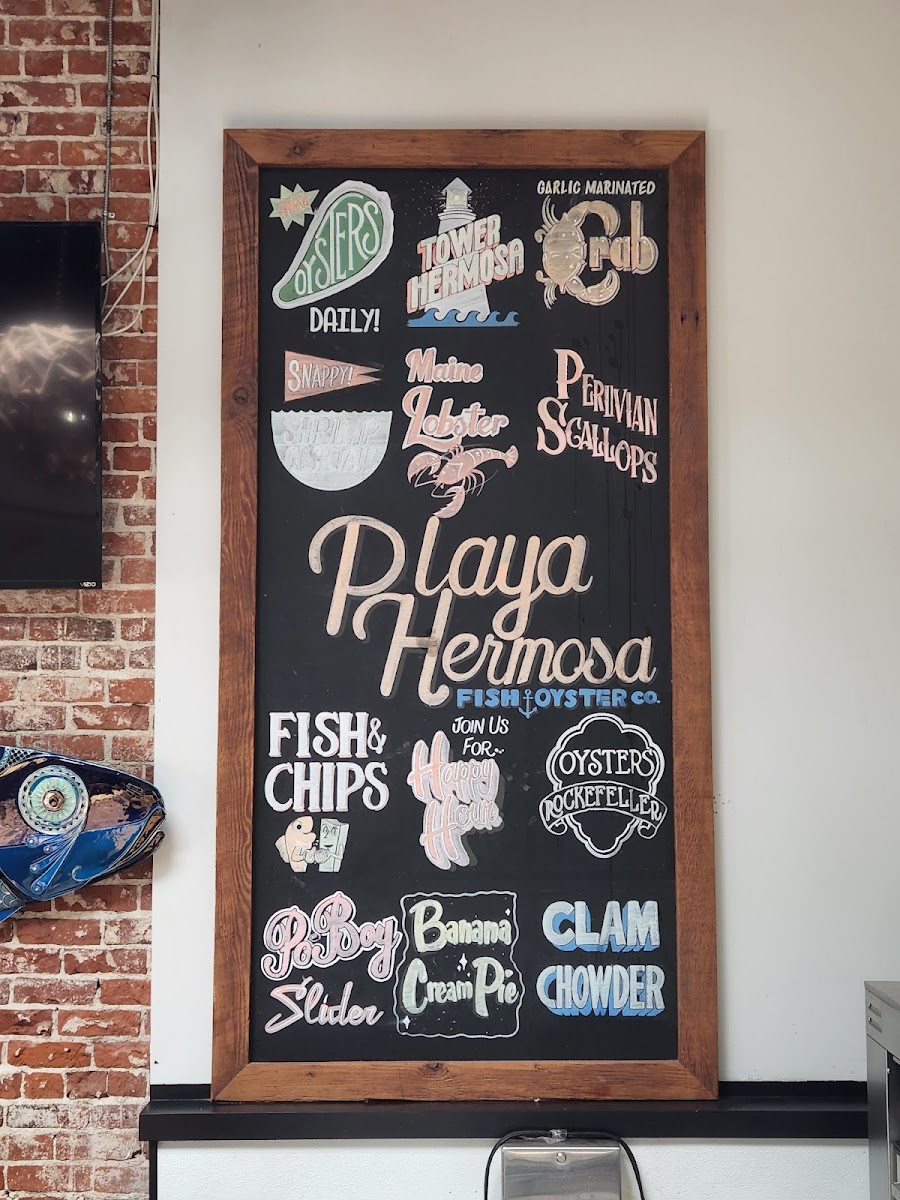 FRESH
OYSTERS
DAILY!
TOWER
HERMOSA
GARLIC MARINATED
Crab
SNAPPY!
SHRIMP
COCKTAIL
Maine
Lobster
PERUVIAN
SCALLOPS
Playa
Hermosa
FISH OYSTER CO.
FISH &
CHIPS
JOIN US
FOR...
Happy
Hour
OYSTERS
ROCKEFELLER
Po-Boy
Slider
Banana
Cream Pie
CLAM
CHOWDER
VIZIO